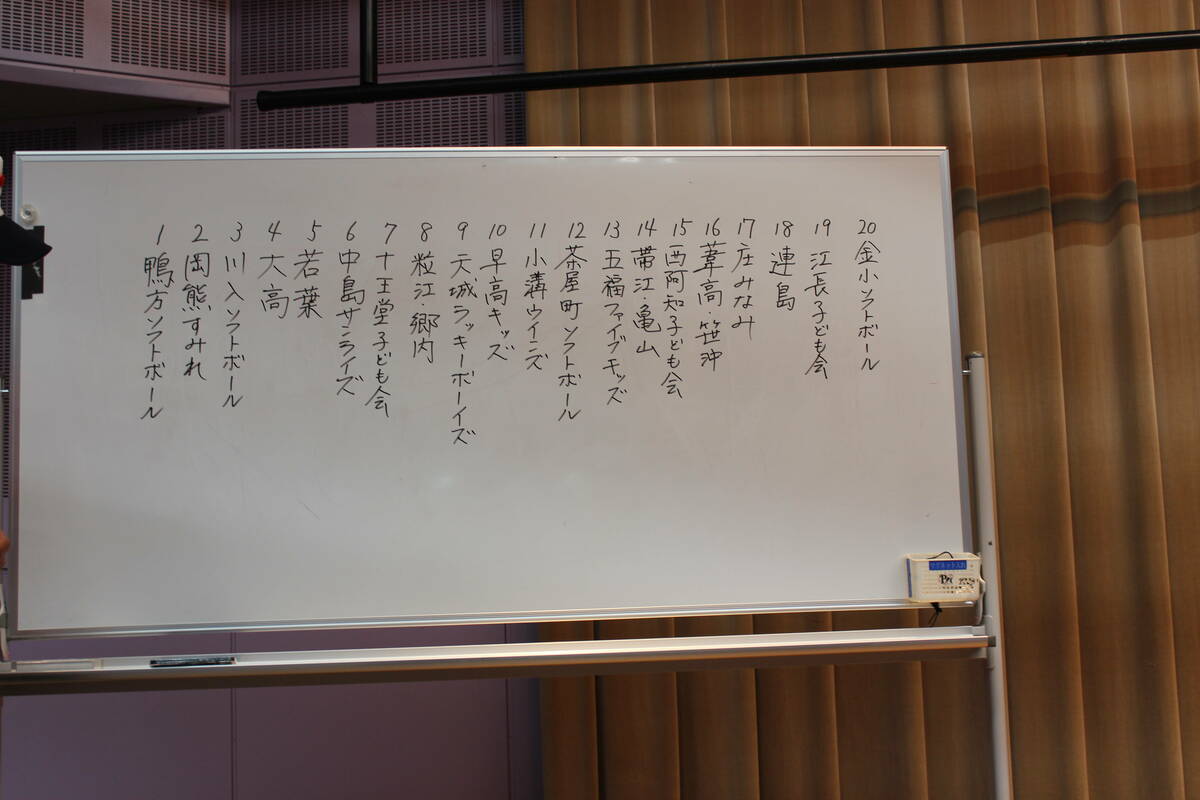 1 鴨方ソフトボール
2 岡熊すみれ
3 川入ソフトボール
4 大高
5 若葉
6 中島サンライズ
7 十王堂子ども会
8 粒江・郷内
9 天城ラッキーボーイズ
10 早高キッズ
11 小溝ウイニズ
12 茶屋町ソフトボール
13 五福ファイブキッズ
14 帯江・亀山
15 西阿知子ども会
16 葦高・笹沖
17 庄みなみ
18 連島
19 江長子ども会
20 金小ソフトボール
マグネット入れ